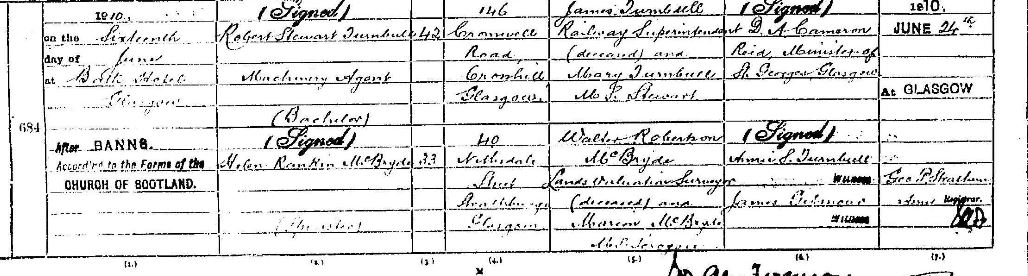 684
1910,
on the Sixteenth
day of June
at Bath Hotel
Glasgow
After BANNS.
According to the Forms of the
CHURCH OF SCOTLAND.
(Signed)
Robert Stewart Turnbull
Machinery Agent
(Bachelor)
(Signed)
Helen Rankin McBryde
(Spinster)
42
33
146
Cromwell
Road
Crosshill
Glasgow
40
Nithsdale
Street
Strathbungo
Glasgow
James Turnbull
Railway Superintendent
(deceased) and
Mary Turnbull
M.S. Stewart
Walter Robertson
McBryde
Lands Valuation Surveyor
(deceased) and
Marion McBryde
M.S.
(Signed)
D. A. Cameron
Reid, Minister of
St. Georges Glasgow
(Signed)
Annie S. Turnbull
Witness
James Gilmour
Witness
1910,
JUNE 24th
At GLASGOW
Geo P.
Registrar.
(1.) (2.) (3.) (4.) (5.) (6.) (7.)
Ferguson